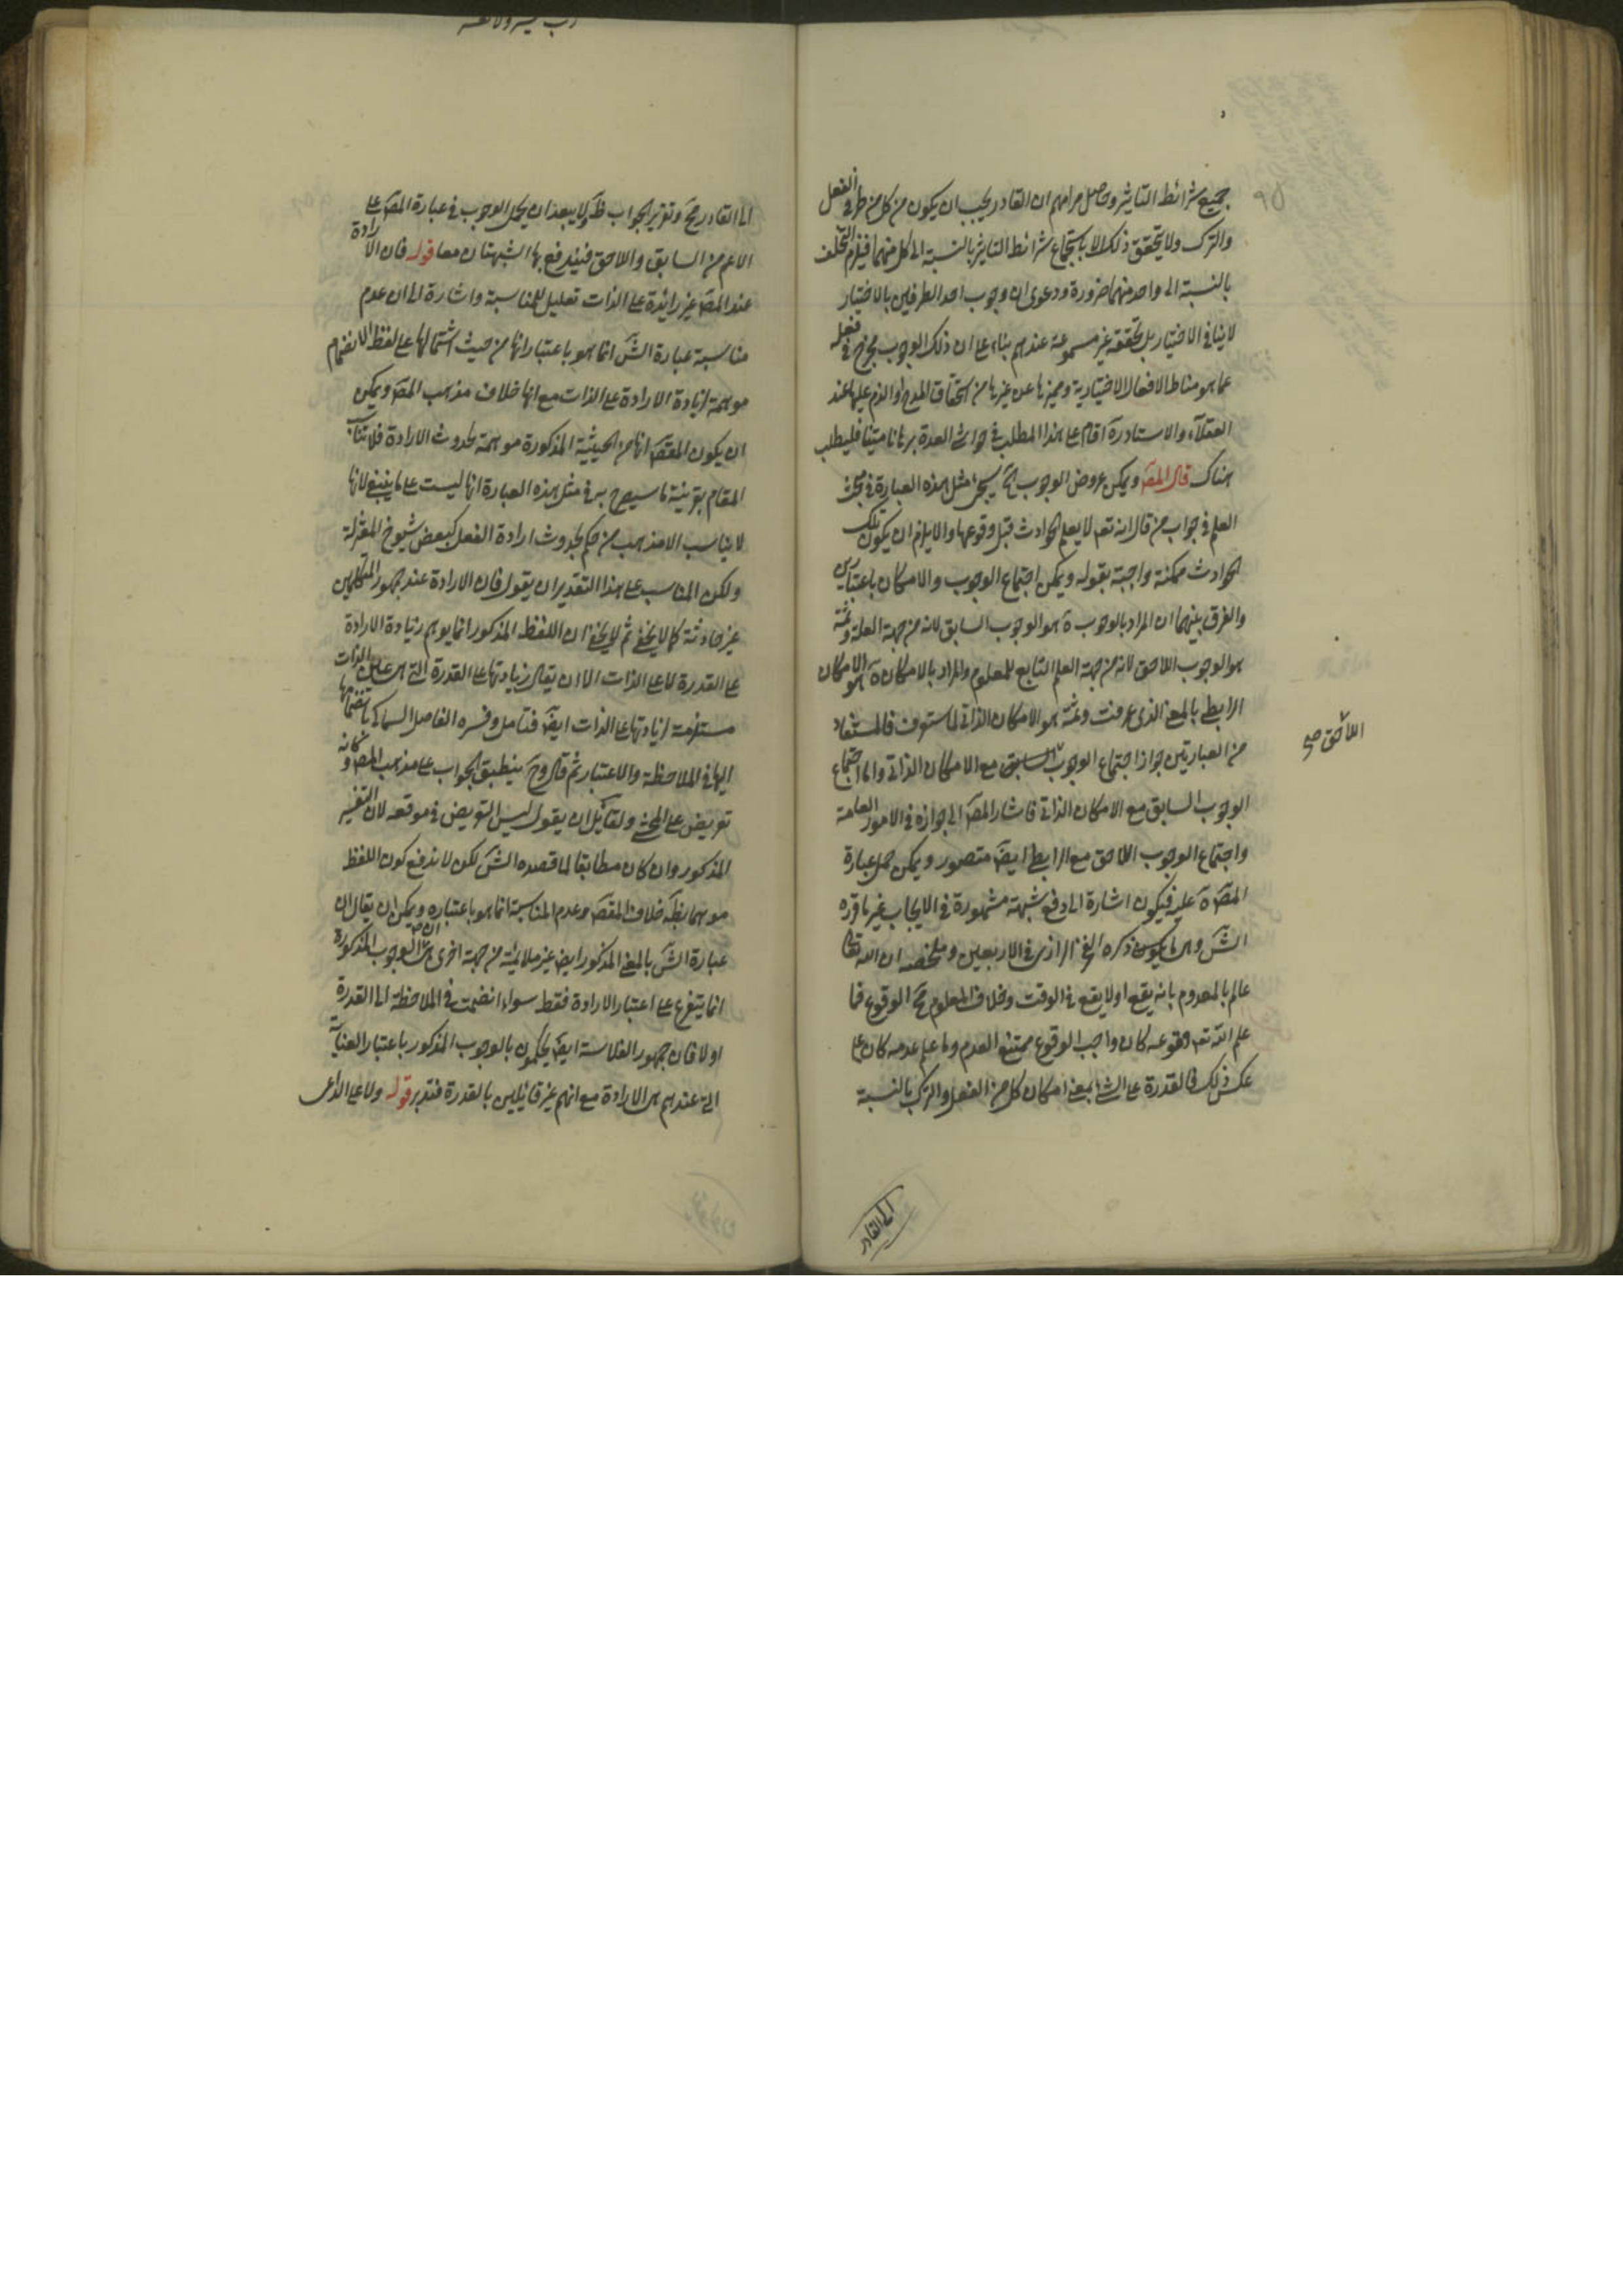 جميع شرائط التاثير وحاصل مرامهم ان القادر يجب ان يكون من كل من طرفى الفعل
والترك ولا يتحقق ذلك الا باستجماع شرائط التاثير بالنسبة الى كل منهما فيلزم التخلف
بالنسبة الى واحد منهما ضرورة ودعوى ان وجوب احد الطرفين بالاختيار
لا ينافى الاختيار بل تحققه غير مسموعة عندهم بناء على ان ذلك الوجوب يخرج فعله
عما هو مناط الافعال الاختيارية ومميزها عن غيرها من استحقاق المدح او الذم عليها عند
العقلاء والاستاد ره اقام على هذا المطلب فى حواشى العدة برهانا متينا فليطلب
هناك قال المص ويمكن عروض الوجوب آه سيجئ مثل هذه العبارة فى بحث
العلم فى جواب من قال انه تع لا يعلم الحوادث قبل وقوعها والا يلزم ان يكون تلك
الحوادث ممكنة واجبة بقوله ويمكن اجتماع الوجوب والامكان باعتبارين
والفرق بينهما ان المراد بالوجوب ة هو الوجوب السابق لانه من جهة العلة وثمة
هو الوجوب اللاحق لانه من جهة العلم التابع للمعلوم والمراد بالامكان ة هو الامكان
الرابطى بالمعنى الذى عرفت وثمة هو الامكان الذاتى لما ستعرف فالمستفاد
من العبارتين جواز اجتماع الوجوب السابق مع الامكان الذاتى واما اجتماع
اللاحق صح
الوجوب السابق مع الامكان الذاتى فاشار المص الى جوازه فى الامور العامة
واجتماع الوجوب اللاحق مع الرابطى ايض متصور ويمكن حمل عبارة
المص ة عليه فيكون اشارة الى دفع شبهة مشهورة فى الايجاب غير ما قرره
الش وهى ما ذكره الفخر الرازى فى الاربعين وملخصه ان الله تعالى
عالم بالمعدوم بانه يقع او لا يقع فى الوقت وخلاف المعلوم مح الوقوع فما
علم الله تع وقوعه كان واجب الوقوع ممتنع العدم وما علم عدمه كان على
عكس ذلك فالقدرة على الشئ بمعنى امكان كل من الفعل والترك بالنسبة
الى القادر
الى القادر مح وتقرير الجواب ظ ولا يبعد ان يحمل الوجوب فى عبارة المص على
الاعم من السابق واللاحق فيندفع بها الشبهتان معا قوله فان الارادة
عند المص غير زائدة على الذات تعليل للمناسبة واشارة الى ان عدم
مناسبة عبارة الش انما هو باعتبار انها من حيث اشتمالها على لفظ الانضمام
موهمة لزيادة الارادة على الذات مع انها خلاف مذهب المص ويمكن
ان يكون المقص انها من الحيثية المذكورة موهمة لحدوث الارادة فلا تناسب
المقام بقرينة ما سيصرح به فى مثل هذه العبارة انها ليست على ما ينبغى لانها
لا يناسب الا مذهب من حكم بحدوث ارادة الفعل كبعض شيوخ المعتزلة
ولكن المناسب على هذا التقدير ان يقول فان الارادة عند جمهور المتكلمين
غير حادثة كما لا يخفى ثم لا يخفى ان اللفظ المذكور انما يوهم زيادة الارادة
على القدرة لا على الذات الا ان يقال زيادتها على القدرة التى هى عين الذات
مستلزمة لزيادتها على الذات ايض فتامل وفسره الفاضل السماكى بانضمامها
اليها فى الملاحظة والاعتبار ثم قال وح ينطبق الجواب على مذهب المص وكانه
تعريض على المحشى ولقائل ان يقول ليس التعريض فى موقعه لان التفسير
المذكور وان كان مطابقا لما قصده الش لكن لا يدفع كون اللفظ
موهما بظه خلاف المقص وعدم المناسبة انما هو باعتباره ويمكن ان يقال ان
عبارة الش بالمعنى المذكور ايض غير ملائمة من جهة اخرى هى ان الوجوب المذكور ة
انما يتفرع على اعتبار الارادة فقط سواء انضمت فى الملاحظة الى القدرة
او لا فان جمهور الفلاسفة ايض يحكمون بالوجوب المذكور باعتبار العناية
التى عندهم هى الارادة مع انهم غير قائلين بالقدرة فتدبر قوله ولا على الداعى